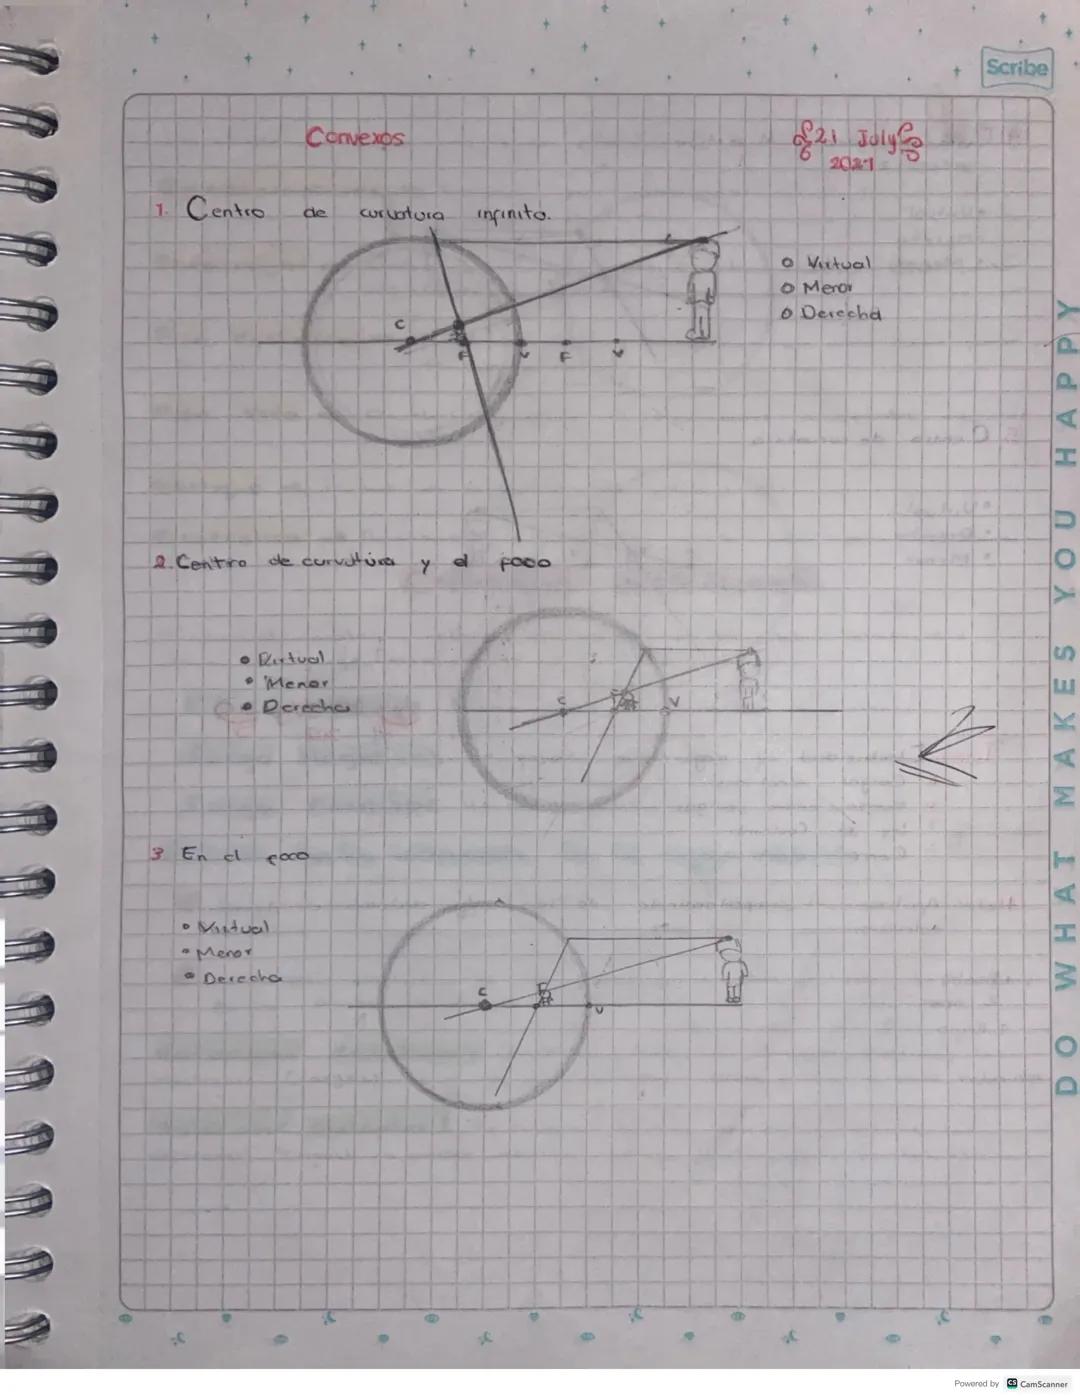 Scribe
Convexos
21 July
2021
1. Centro de curvatura infinito.
o Virtual
o Menor
o Derecha
C
F
V
F
V
2. Centro de curvatura y el foco
• Virtual
• Menor
• Derecha
C
V
3 En el foco
• Virtual
• Menor
• Derecha
C
V
DO WHAT MAKES YOU HAPPY
Powered by CS CamScanner